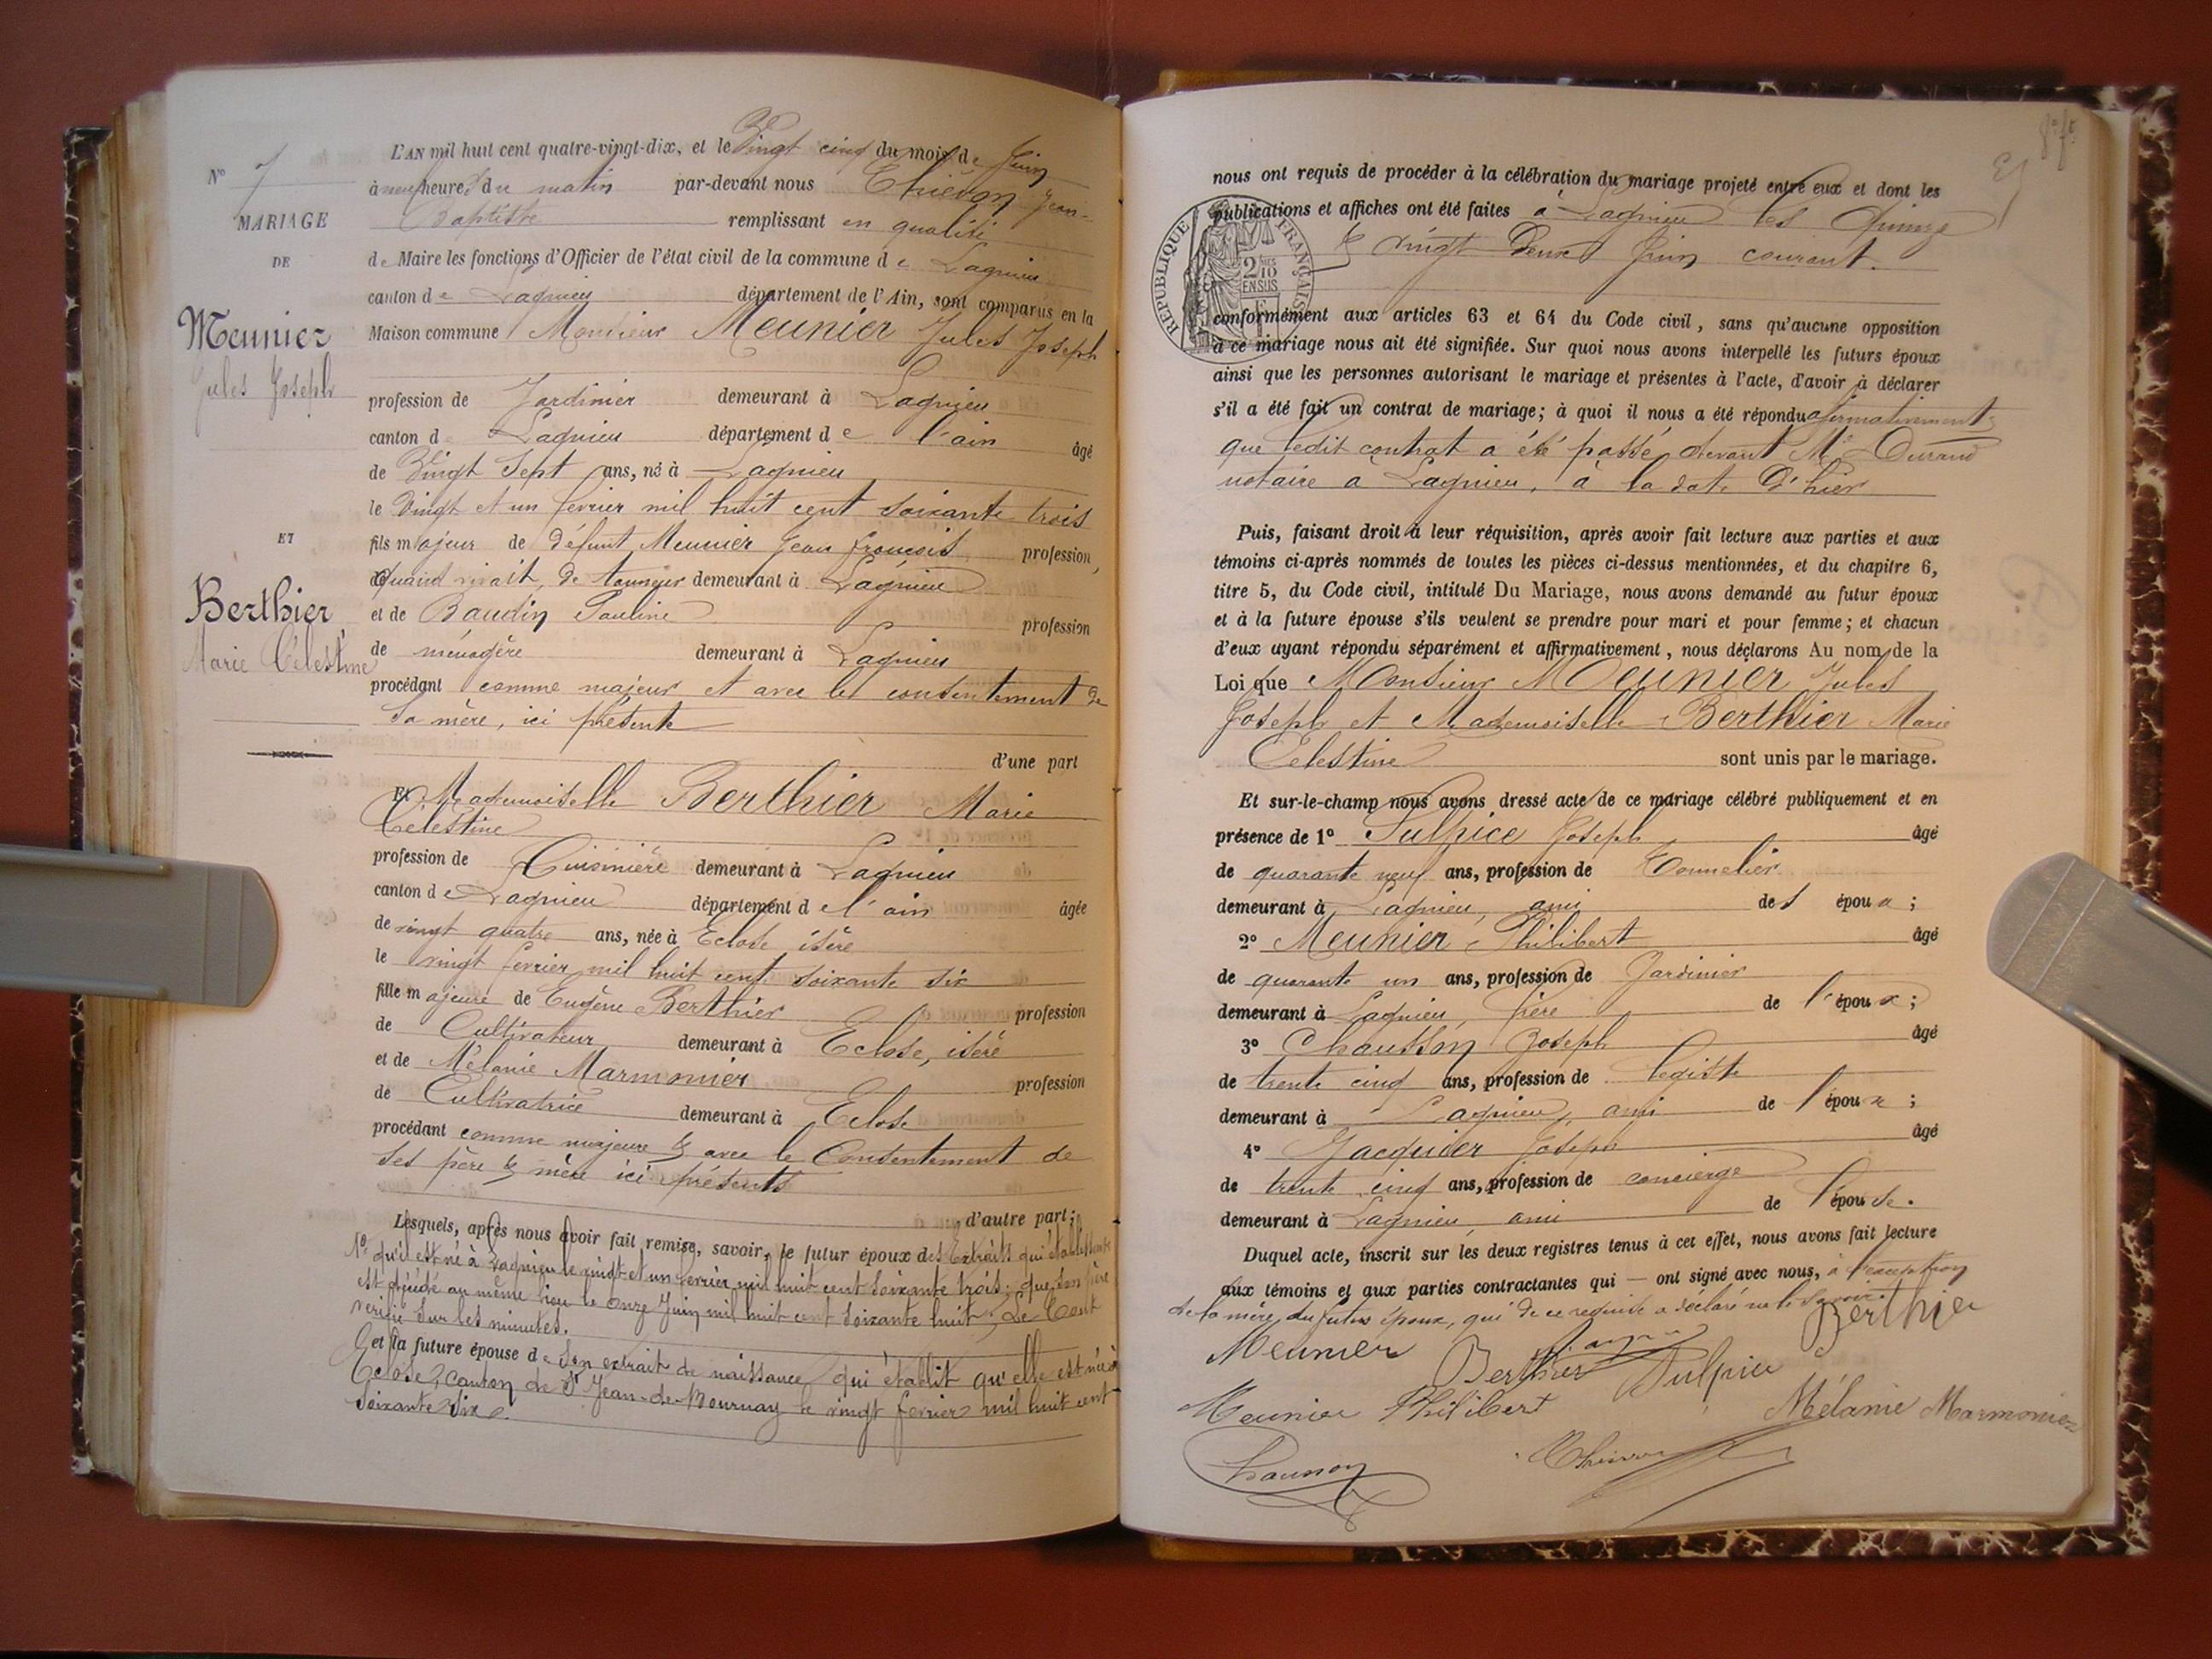 N° 7
MARIAGE
DE
Meunier
Jules Joseph
ET
Berthier
Marie Célestine
L'AN mil huit cent quatre-vingt-dix, et le Vingt cinq du mois de Juin
à neuf heures du matin par-devant nous Thiévon Jean-
Baptiste remplissant en qualité
de Maire les fonctions d'Officier de l'état civil de la commune de Lagnieu
canton de Lagnieu département de l'Ain, sont comparus en la
Maison commune Monsieur Meunier Jules Joseph
profession de Jardinier demeurant à Lagnieu
canton de Lagnieu département de l'ain âgé
de Vingt Sept ans, né à Lagnieu
le Vingt et un février mil huit cent soixante trois
fils majeur de défunt Meunier Jean françois profession,
quand vivait, de demeurant à Lagnieu
et de Baudin Pauline profession
de ménagère demeurant à Lagnieu
procédant comme majeur et avec le consentement de
Sa mère, ici présente
d'une part
Et Mademoiselle Berthier Marie
Célestine
profession de Cuisinière demeurant à Lagnieu
canton de Lagnieu département de l'ain âgée
de vingt quatre ans, née à Eclose isère
le vingt février mil huit cent soixante six
fille majeure de Eugène Berthier profession
de Cultivateur demeurant à Eclose, isère
et de Mélanie Marmonier profession
de Cultivatrice demeurant à Eclose
procédant comme majeure & avec le Consentement de
ses père & mère ici présents
d'autre part;
Lesquels, après nous avoir fait remise, savoir, le futur époux des Extraits qui établissent
1° qu'il est né à Lagnieu le vingt et un février mil huit cent soixante trois; que son père
est décédé au même lieu le onze Juin mil huit cent soixante huit; Le tout
verifié sur les minutes.
et la future épouse de son extrait de naissance qui établit qu'elle est née à
Eclose, canton de St Jean-de-Bournay le vingt février mil huit cent
soixante six.
nous ont requis de procéder à la célébration du mariage projeté entre eux et dont les
publications et affiches ont été faites à Lagnieu les Quinze
& vingt deux Juin courant.
RÉPUBLIQUE FRANÇAISE
2/10
EN SUS
conformément aux articles 63 et 64 du Code civil, sans qu'aucune opposition
à ce mariage nous ait été signifiée. Sur quoi nous avons interpellé les futurs époux
ainsi que les personnes autorisant le mariage et présentes à l'acte, d'avoir à déclarer
s'il a été fait un contrat de mariage; à quoi il nous a été répondu afirmativement
que ledit contrat a été passé devant Me Durand
notaire à Lagnieu, à la date d'hier
Puis, faisant droit à leur réquisition, après avoir fait lecture aux parties et aux
témoins ci-après nommés de toutes les pièces ci-dessus mentionnées, et du chapitre 6,
titre 5, du Code civil, intitulé Du Mariage, nous avons demandé au futur époux
et à la future épouse s'ils veulent se prendre pour mari et pour femme; et chacun
d'eux ayant répondu séparément et affirmativement, nous déclarons Au nom de la
Loi que Monsieur Meunier Jules
Joseph et Mademoiselle Berthier Marie
Celestine sont unis par le mariage.
Et sur-le-champ nous avons dressé acte de ce mariage célébré publiquement et en
présence de 1° Sulpice Joseph âgé
de quarante neuf ans, profession de Tonnelier
demeurant à Lagnieu, ami des époux;
2° Meunier Philibert âgé
de quarante un ans, profession de Jardinier
demeurant à Lagnieu, frère de l'époux;
3° Chausson Joseph âgé
de trente cinq ans, profession de légiste
demeurant à Lagnieu, ami de l'époux;
4° Jacquier Joseph âgé
de trente cinq ans, profession de concierge
demeurant à Lagnieu, ami de l'épouse.
Duquel acte, inscrit sur les deux registres tenus à cet effet, nous avons fait lecture
aux témoins et aux parties contractantes qui — ont signé avec nous, à l'exception
de la mère du futur époux, qui de ce requise a déclaré ne le savoir.
Berthier
Meunier
Berthier Sulpice
Meunier Philibert Mélanie Marmonier
Chausson